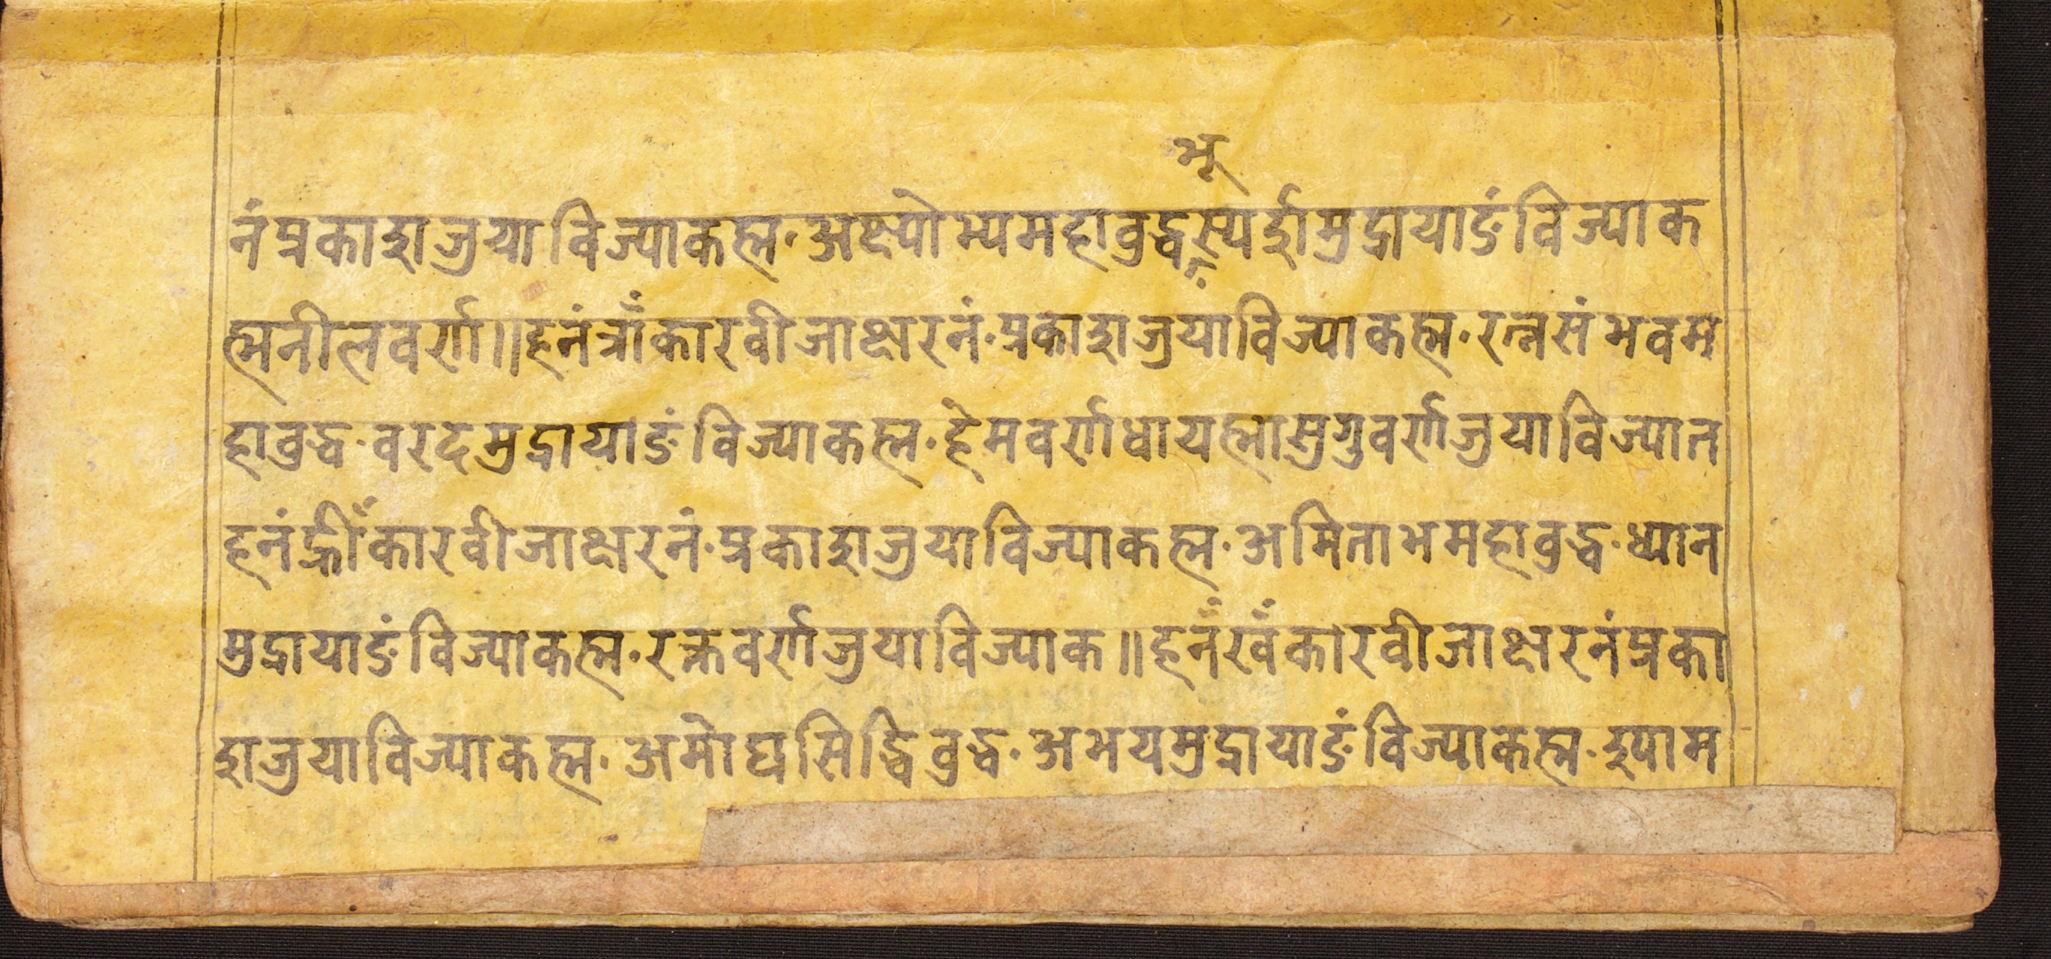 भू
नं प्रकाशजुयाविज्याकह्म·अक्ष्योभ्यमहाबुद्धस्पर्शमुद्रायाङंविज्याक
ह्मनीलवर्ण॥हनंत्राँकारवीजाक्षरनं·प्रकाशजुयाविज्याकह्म·रत्नसंभवम
हावुद्ध·वरदमुद्रायाङंविज्याकह्म·हेमवर्णधायह्मासुगुवर्णजुयाविज्यात
हनंह्रीँकारवीजाक्षरनं·प्रकाशजुयाविज्याकह्म·अमिताभमहावुद्ध·ध्यान
मुद्रायाङंविज्याकह्म·रक्तवर्णजुयाविज्याक॥हनँखँकारवीजाक्षरनंप्रका
शजुयाविज्याकह्म·अमोघसिद्धिवुद्ध·अभयमुद्रायाङंविज्याकह्म·श्याम